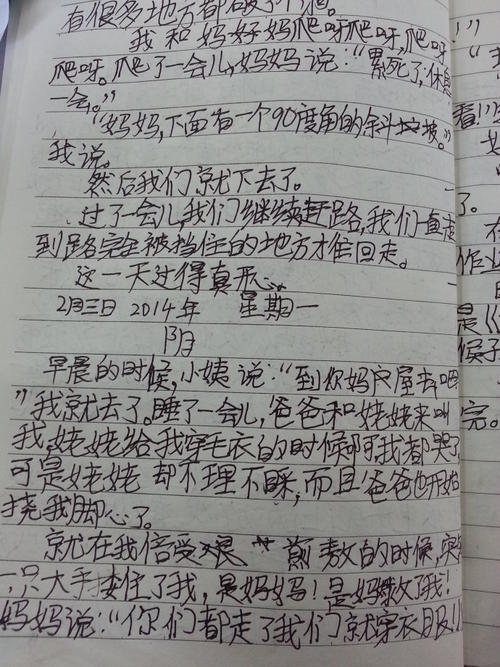 有很多地方都破了个洞。
我和妈妈好妈爬呀爬呀,爬呀
爬呀。爬了一会儿,妈妈说:“累死了,休息
一会。”
“妈妈,下面有一个90度角的余斗坡。”
我说。
然后我们就下去了。
过了一会儿,我们继续赶路,我们一直走
到路完全被挡住的地方才往回走。
这一天过得真开心。
2月三日 2014年 星期一
阴
早晨的时候,小姨说:“到你妈屋去吧
”我就去了。睡了一会儿,爸爸和姥姥来叫
我,姥姥给我穿毛衣的时候啊我都哭了
可是姥姥却不理不睬,而且爸爸也开始
挠我脚心了。
就在我倍受煎熬的时候,突然
一只大手搂住了我,是妈妈!是妈救了我!
妈妈说:“你们都走了我们就穿衣服!
看!
了。
作业
是
侯子
完。